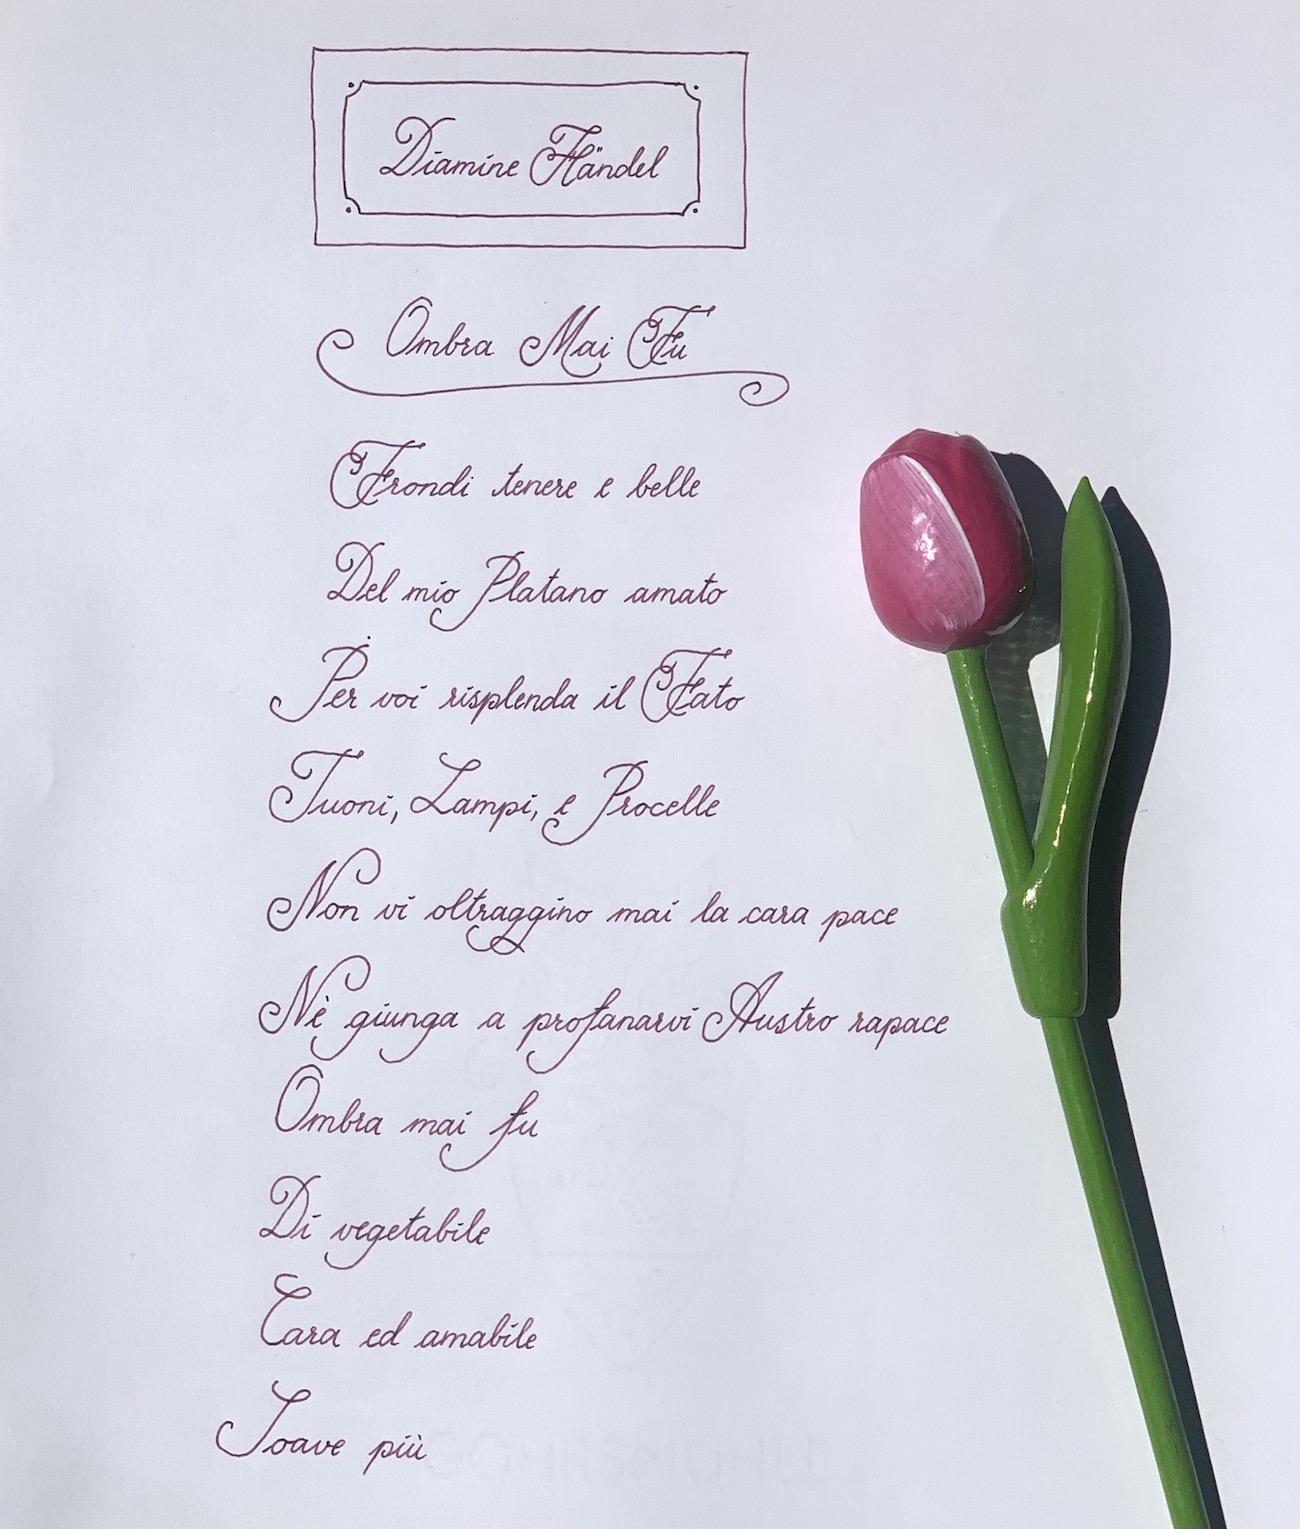 Diamine Händel
Ombra Mai Fu
Frondi tenere e belle
Del mio Platano amato
Per voi risplenda il Fato
Tuoni, Lampi, e Procelle
Non vi oltraggino mai la cara pace
Nè giunga a profanarvi Austro rapace
Ombra mai fu
Di vegetabile
Cara ed amabile
Soave più